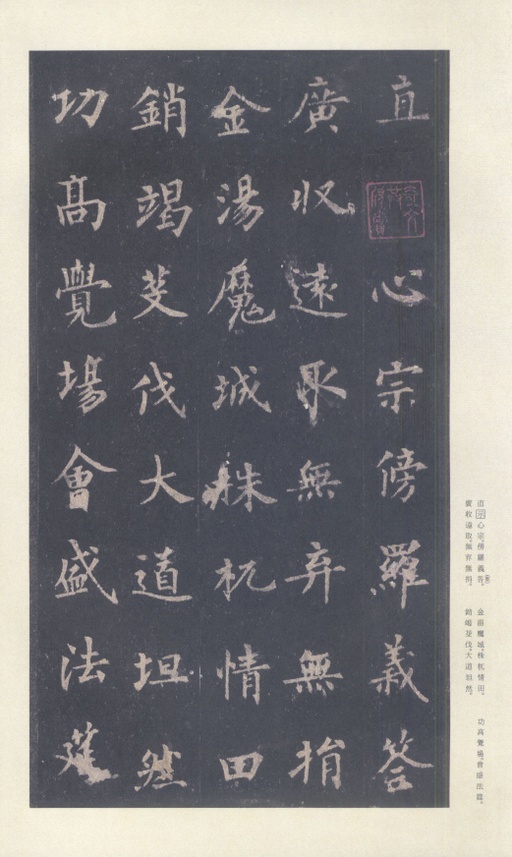 直心宗傍羅義荅
廣収遠取無弃無捐
金湯魔城株杌情田
銷竭芟伐大道坦然
功髙覺場會盛法筵
直示心宗、傍羅義荅。
廣收遠取、無弃無捐。
金湯魔城、株杌情田。
銷竭芟伐、大道坦然。
功高覺場、會盛法筵。